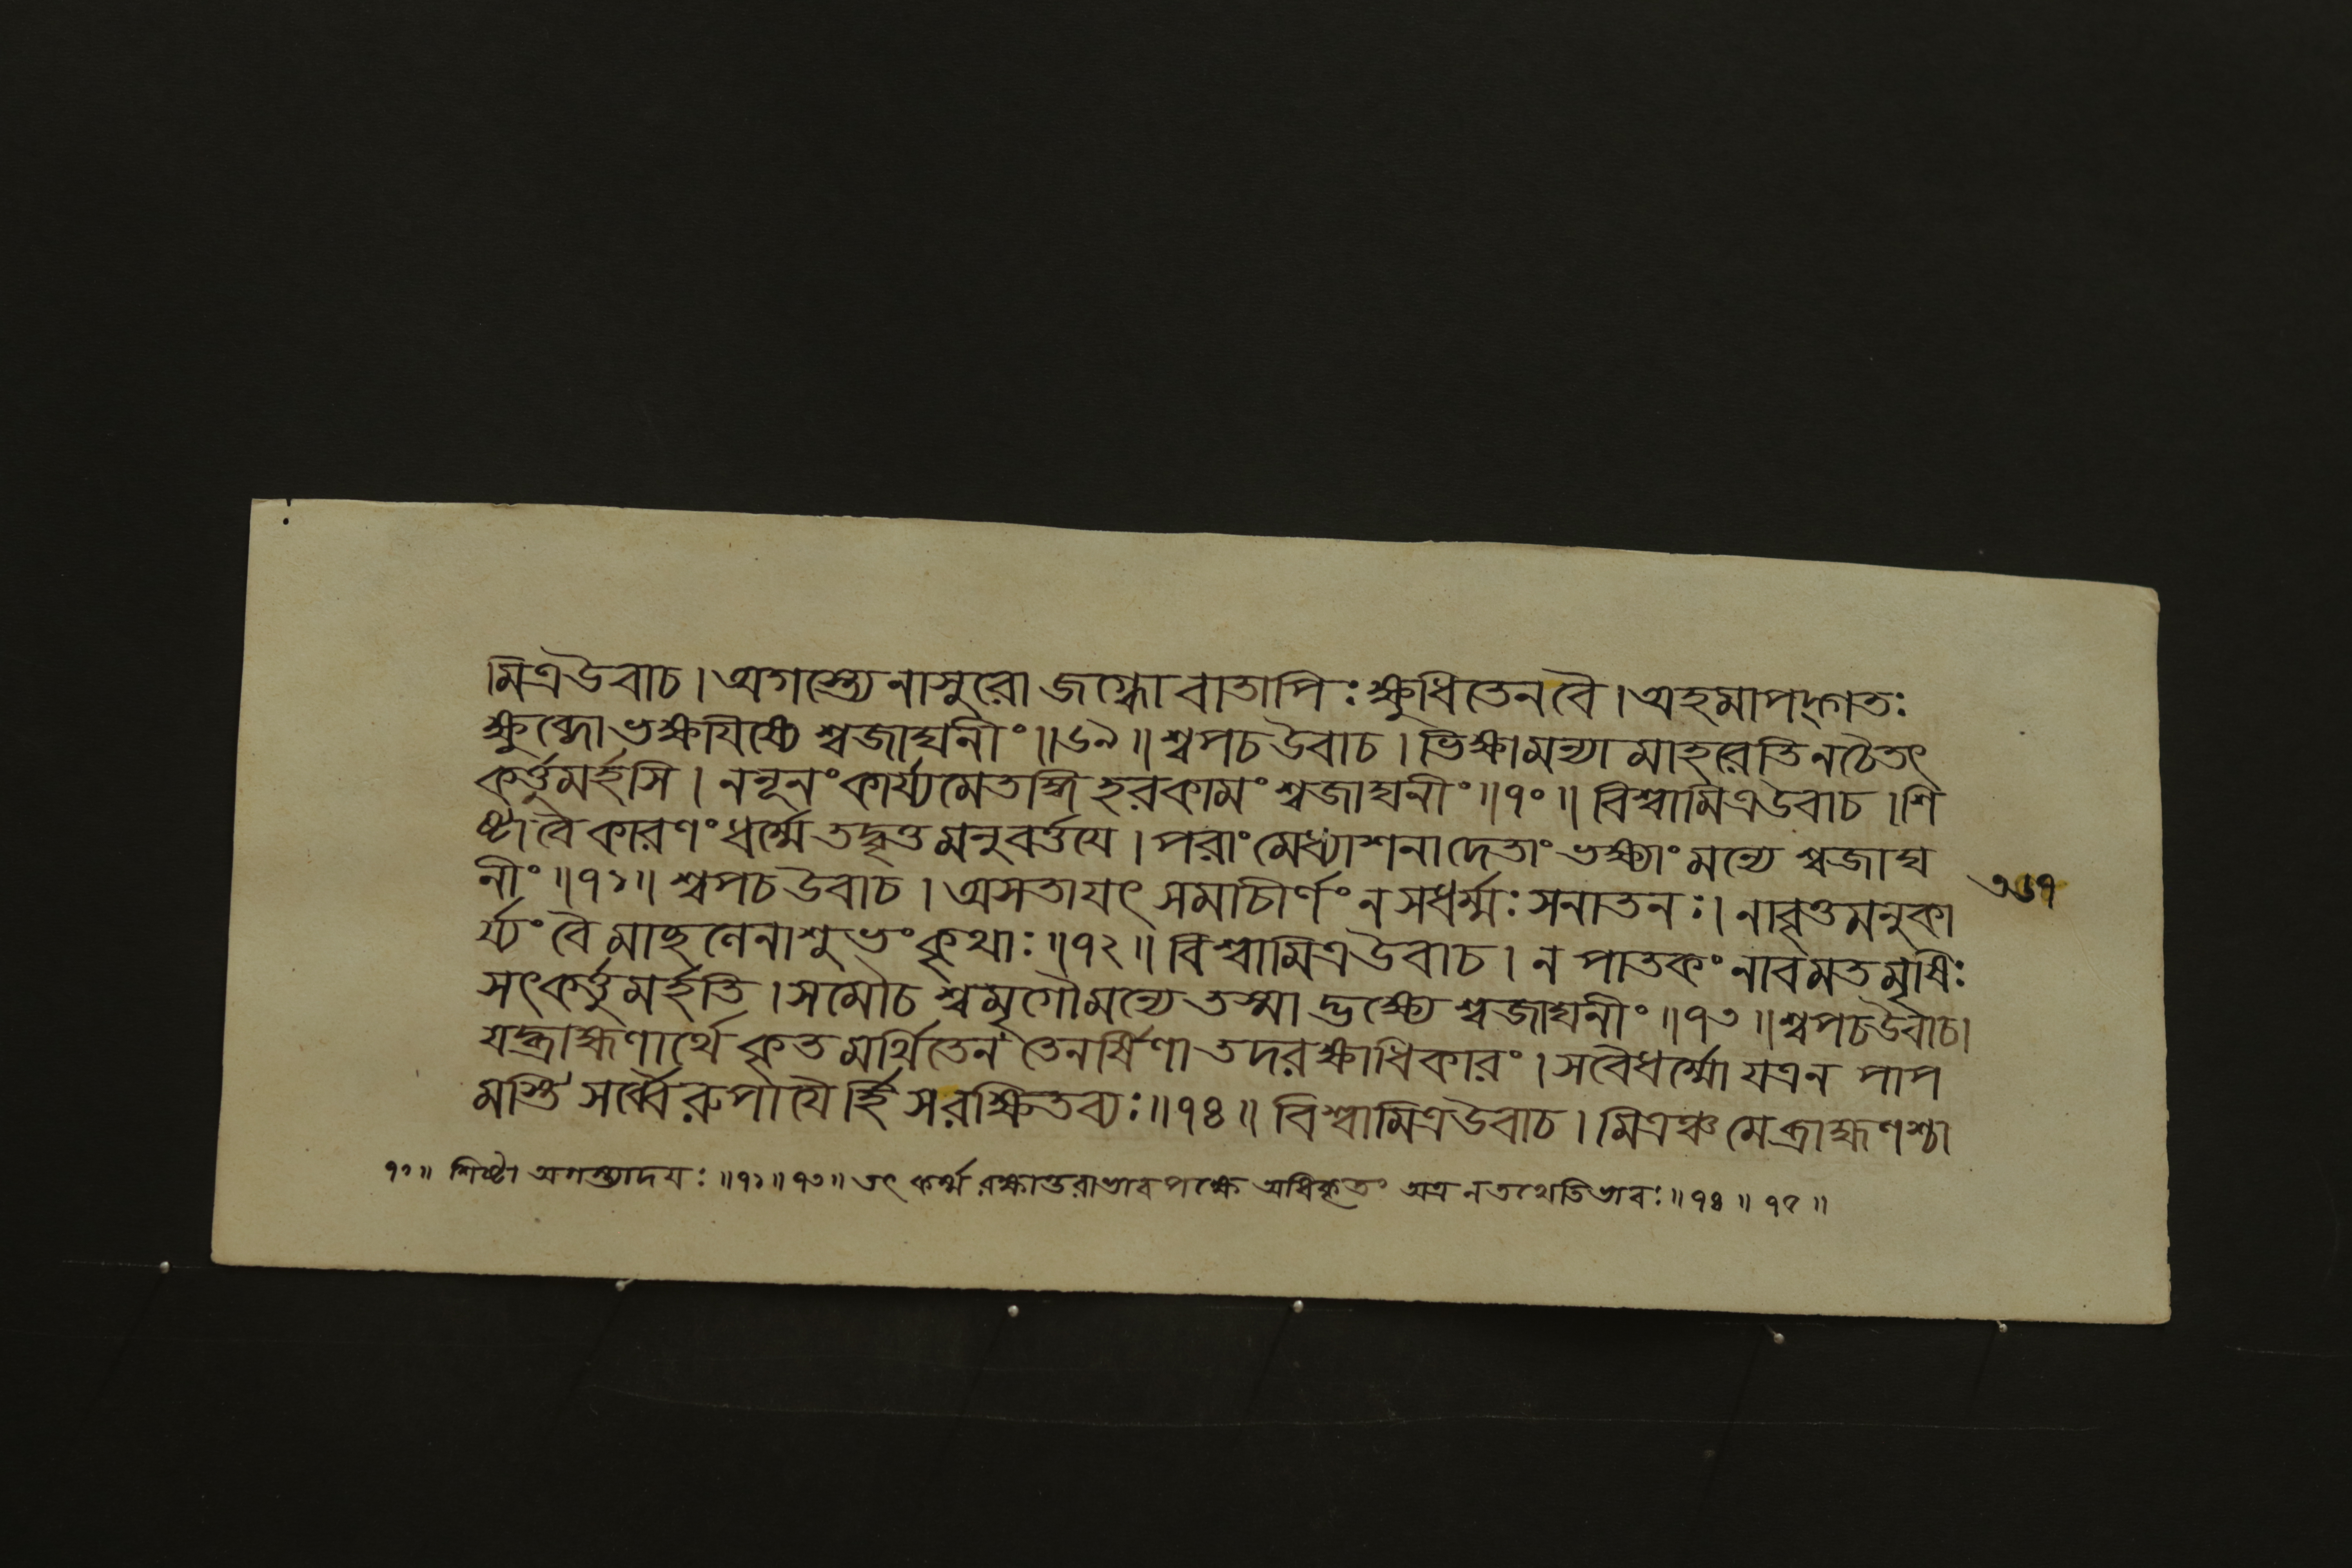 মিত্রউবাচ। অগস্ত্যেনাসুরো জগ্ধো বাতাপিঃ ক্ষুধিতেনবৈ। অহমাপদ্গতঃ
ক্ষুব্ধো ভক্ষয়িষ্যে শ্বজাঘনীং॥৬৯॥ শ্বপচ উবাচ। ভিক্ষামন্যা মাহরেতি নচৈতৎ
কর্ত্তুমর্হসি। ননূনং কার্য্যমেতদ্ধি হরকামং শ্বজাঘনীং॥৭০॥ বিশ্বামিত্রউবাচ। শি
ষ্টা বৈ কারণং ধর্ম্মে তদ্বৃত্তমনুবর্ত্তয়ে। পরাং মেধ্যাশনাদেতাং ভক্ষ্যাং মন্যে শ্বজাঘ
নীং॥৭১॥ শ্বপচ উবাচ। অসতাযৎ সমাচীর্ণং ন সধর্ম্মঃ সনাতনঃ। নাবৃত্তমনুকা
র্য্যং বৈ মাছলেনাশুভং কৃথাঃ॥৭২॥ বিশ্বামিত্রউবাচ। ন পাতকং নাবমতমৃষিঃ
সৎকর্ত্তুমর্হতি। সমৌচ শ্বমৃগৌমন্যে তস্মাদ্ভক্ষ্যে শ্বজাঘনীং॥৭৩॥ শ্বপচউবাচ।
যদ্ব্রাহ্মণার্থে কৃতমর্থিতেন তেনর্ষিণা তদরক্ষাধিকারং। সবৈধর্ম্মো যত্রন পাপ
মস্তি সর্ব্বৈরুপায়ৈর্হি সরক্ষিতব্যঃ॥৭৪॥ বিশ্বামিত্রউবাচ। মিত্রঞ্চ মেব্রাহ্মণশ্চা
৩৬৭
৭১॥ শিষ্টা অগস্ত্যাদয়ঃ॥৭২॥৭৩॥ তৎ কর্ম্ম রক্ষান্তরাভাব পক্ষে অধিকৃতং অত্র নতথেতিভাবঃ॥৭৪॥৭৫॥